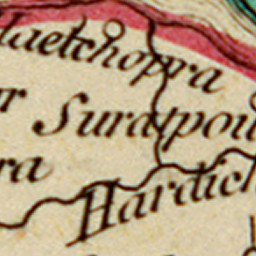 laetchopra
r Suratpou
ra
Hardich